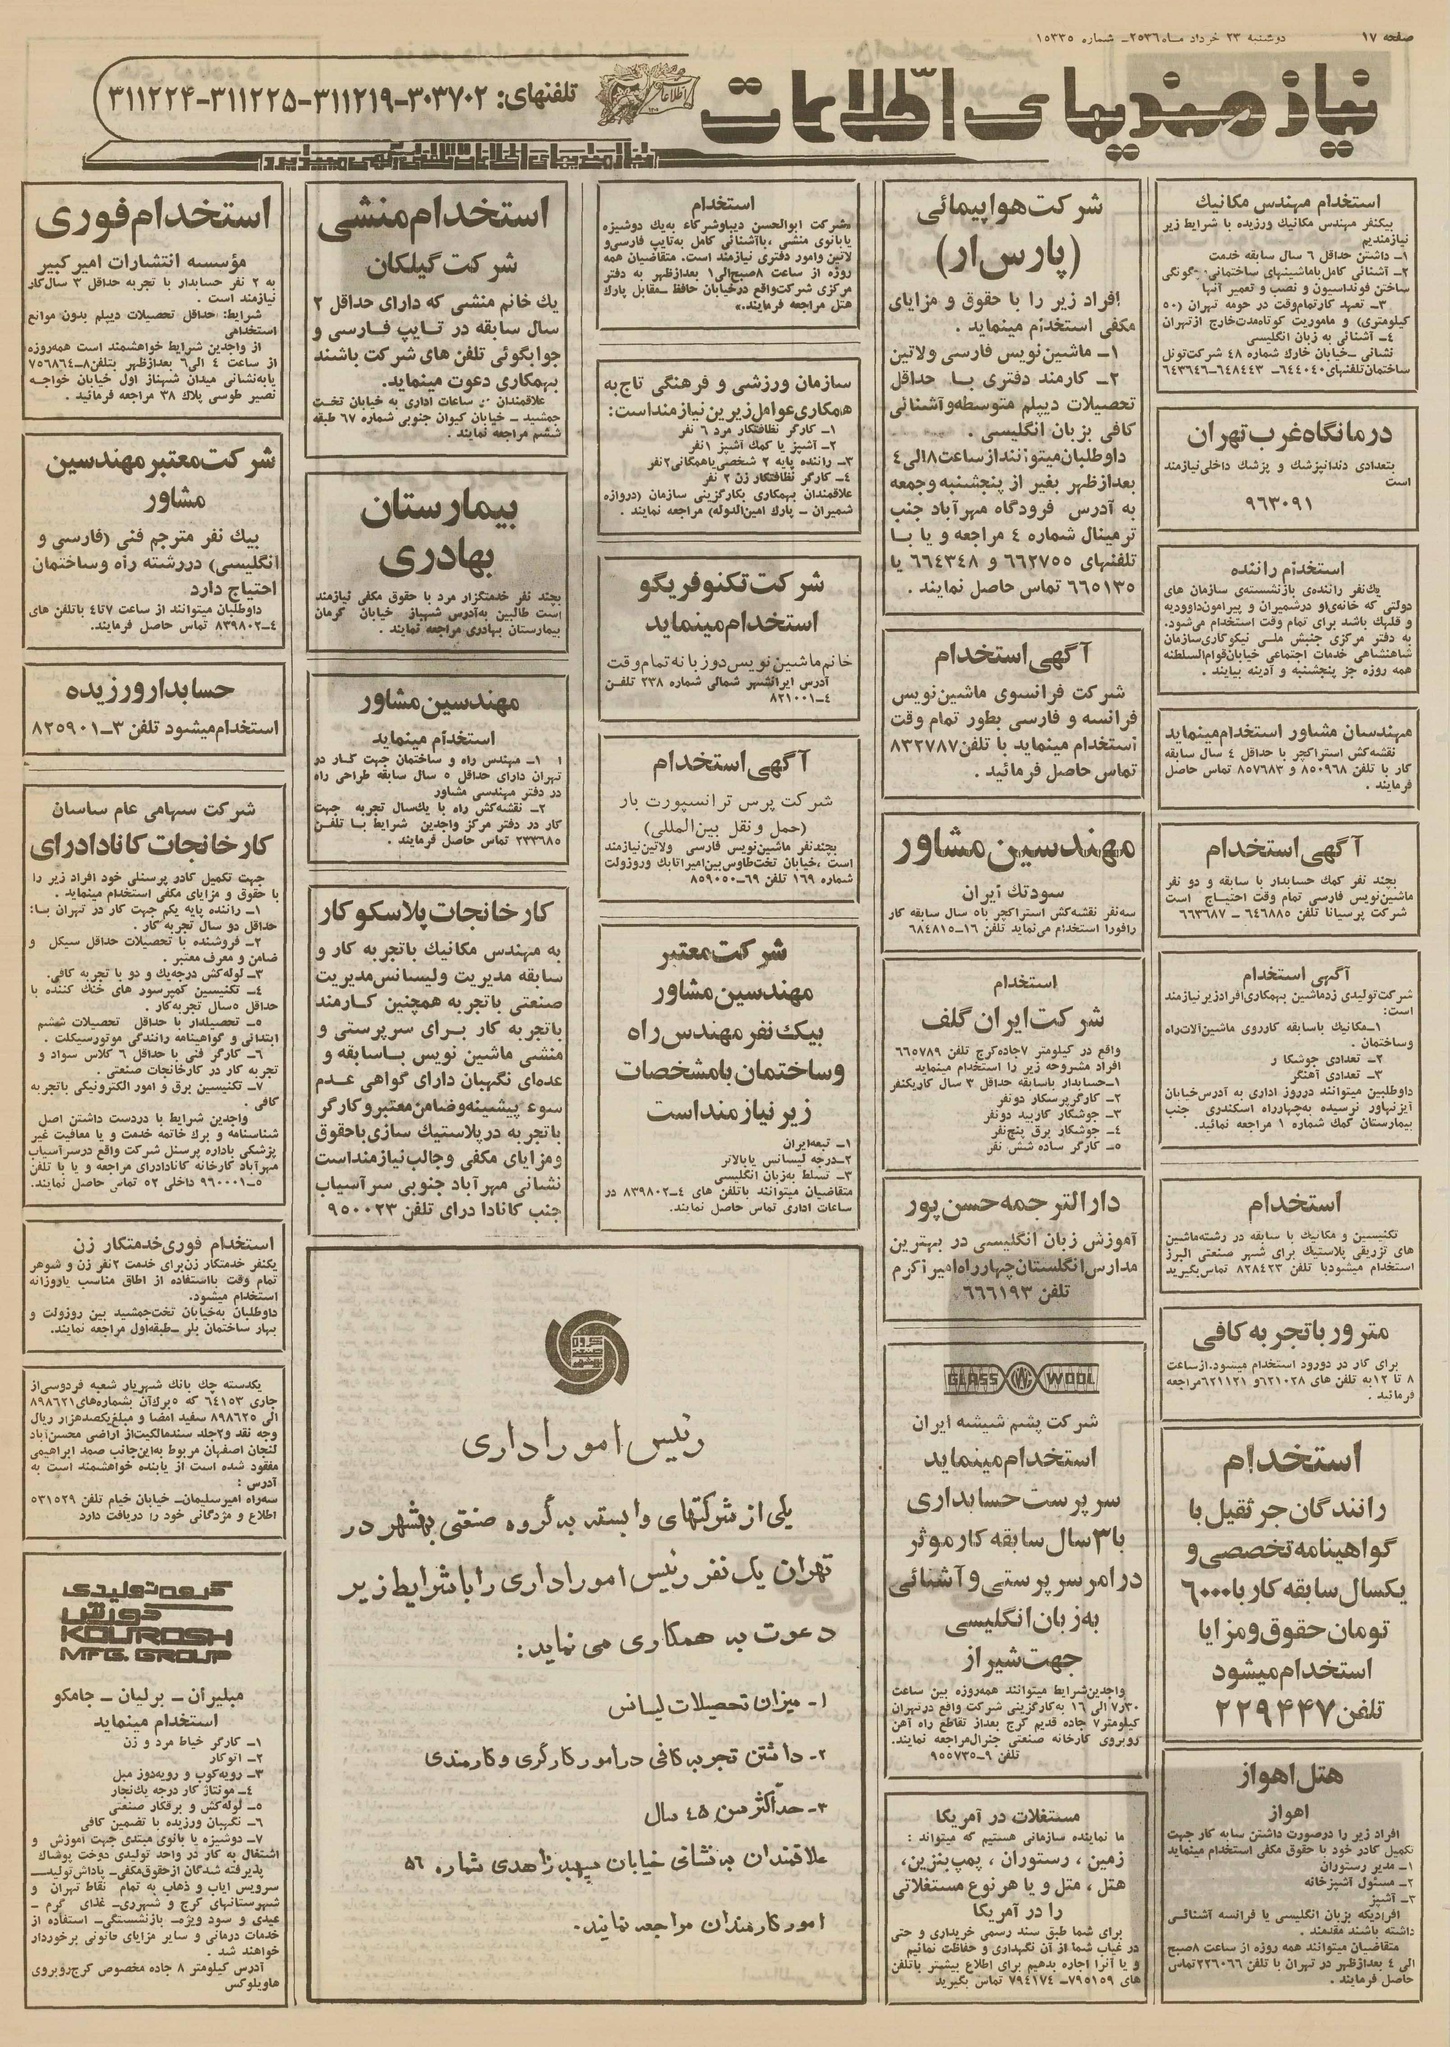 صفحه ۱۷
دوشنبه ۲۳ خرداد ماه ۲۵۳۶ــ شماره ۱۵۳۳۵
نیازمندیهای اطلاعات
تلفنهای: ۳۰۳۷۰۲-۳۱۱۲۱۹-۳۱۱۲۲۵-۳۱۱۲۲۴
استخدام مهندس مکانیک
یکنفر مهندس مکانیک ورزیده با شرایط زیر
نیازمندیم
۱ــ داشتن حداقل ۶ سال سابقه خدمت
۲ــ آشنائی کامل باماشینهای ساختمانی، چگونگی
ساختن فونداسیون و نصب و تعمیر آنها
۳ــ تعهد کارتمام‌وقت در حومه تهران (۵۰
کیلومتری) و ماموریت کوتاه‌مدت‌خارج ازتهران
۴ــ آشنائی به زبان انگلیسی
نشانی ــ خیابان خارک شماره ۴۸ شرکت‌تونل
ساختمان‌تلفنهای ۶۴۴۰۴۰ــ ۶۴۸۴۴۳ــ۶۴۳۶۴۶
درمانگاه غرب تهران
بتعدادی دندانپزشک و پزشک داخلی نیازمند
است
۹۶۳۰۹۱
استخدام راننده
یکنفر راننده‌ی بازنشسته‌ی سازمان های
دولتی که خانه‌ی‌او درشمیران و پیرامون‌داوودیه
و قلهک باشد برای تمام وقت استخدام می‌شود.
به دفتر مرکزی جنبش ملی نیکوکاری‌سازمان
شاهنشاهی خدمات اجتماعی خیابان‌قوام‌السلطنه
همه روزه جز پنجشنبه و آدینه بیایند .
مهندسان مشاور استخدام مینماید
نقشه‌کش استراکچر با حداقل ۴ سال سابقه
کار با تلفن ۸۵۰۹۶۸ و ۸۵۷۶۸۳ تماس حاصل
فرمایند .
آگهی استخدام
بچند نفر کمک حسابدار با سابقه و دو نفر
ماشین‌نویس فارسی تمام وقت احتیاج است
شرکت پرسیانا تلفن ۶۴۶۸۸۵ ــ ۶۶۳۶۸۷
آگهی استخدام
شرکت‌تولیدی زدماشین بهمکاری‌افرادزیرنیازمند
است:
۱ــ مکانیک باسابقه کارروی ماشین‌آلات‌راه
وساختمان .
۲ــ تعدادی جوشکار
۳ــ تعدادی آهنگر
داوطلبین میتوانند درروز اداری به آدرس‌خیابان
آیزنهاور نرسیده به‌چهارراه اسکندری جنب
بیمارستان کمک شماره ۱ مراجعه نمایند.
استخدام
تکنیسین و مکانیک با سابقه در رشته‌ماشین
های تزریقی پلاستیک برای شهر صنعتی البرز
استخدام میشودبا تلفن ۸۲۸۴۲۳ تماس‌بگیرید
مترور باتجربه کافی
برای کار در دورود استخدام میشود.ازساعت
۸ تا ۱۲ به تلفن های ۶۲۱۰۲۸و ۶۲۱۱۲۱مراجعه
فرمائید .
استخدام
رانندگان جرثقیل با
گواهینامه تخصصی و
یکسال سابقه کار با ۶۰۰۰
تومان حقوق و مزایا
استخدام میشود
تلفن ۲۲۹۴۴۷
هتل اهواز
اهواز
افراد زیر را درصورت داشتن سابه کار جهت
تکمیل کادر خود با حقوق مکفی استخدام مینماید
۱ــ مدیر رستوران
۲ــ مسئول آشپزخانه
۳ــ آشپز
افرادیکه بزبان انگلیسی یا فرانسه آشنائی
داشته باشند مقدمند .
متقاضیان میتوانند همه روزه از ساعت ۸صبح
الی ۴ بعدازظهر در تهران با تلفن ۲۲۶۰۶۶تماس
حاصل فرمایند .
شرکت هواپیمائی
(پارس ار)
افراد زیر را با حقوق و مزایای
مکفی استخدام مینماید .
۱ــ ماشین نویس فارسی ولاتین
۲ــ کارمند دفتری با حداقل
تحصیلات دیپلم متوسطه وآشنائی
کافی بزبان انگلیسی .
داوطلبان میتوانند از ساعت ۸الی۴
بعدازظهر بغیر از پنجشنبه وجمعه
به آدرس فرودگاه مهرآباد جنب
ترمینال شماره ۴ مراجعه و یا با
تلفنهای ۶۶۲۷۵۵ و ۶۶۴۳۴۸ یا
۶۶۵۱۳۵ تماس حاصل نمایند .
آگهی استخدام
شرکت فرانسوی ماشین‌نویس
فرانسه و فارسی بطور تمام وقت
استخدام مینماید با تلفن ۸۳۲۷۸۷
تماس حاصل فرمائید .
مهندسین مشاور
سودتک ایران
سه‌نفر نقشه‌کش استراکچر با۵ سال سابقه کار
رافورا استخدام می‌نماید تلفن ۱۶ــ۶۸۴۸۱۵
استخدام
شرکت ایران گلف
واقع در کیلومتر ۷جاده‌کرج تلفن ۶۶۵۷۸۹
افراد مشروحه زیر را استخدام مینماید
۱ــ حسابدار باسابقه حداقل ۳ سال کاریکنفر
۲ــ کارگرپرسکار دونفر
۳ــ جوشکار کاربید دونفر
۴ــ جوشکار برق پنج‌نفر
۵ــ کارگر ساده شش نفر
دارالترجمه حسن پور
آموزش زبان انگلیسی در بهترین
مدارس انگلستان چهارراه امیراکرم
تلفن ۶۶۶۱۹۳
GLASS WOOL
شرکت پشم شیشه ایران
استخدام مینماید
سرپرست حسابداری
با ۳ سال سابقه کار موثر
در امر سرپرستی و آشنائی
به زبان انگلیسی
جهت شیراز
واجدین‌شرایط میتوانند همه‌روزه بین ساعت
۷ر۳۰ الی ۱۶ به‌کارگزینی شرکت واقع درتهران
کیلومتر۷ جاده قدیم کرج بعداز تقاطع راه آهن
روبروی کارخانه صنعتی جنرال‌مراجعه نمایند.
تلفن ۹ــ۹۰۵۷۳۵
مستغلات در آمریکا
ما نماینده سازمانی هستیم که میتواند :
زمین ، رستوران ، پمپ‌بنزین،
هتل ، متل و یا هر نوع مستغلاتی
را در آمریکا
برای شما طبق سند رسمی خریداری و حتی
در غیاب شما از آن نگهداری و حفاظت نمائیم
و یا آنرا اجاره بدهیم برای اطلاع بیشتر باتلفن
های ۷۹۵۱۵۹ــ ۷۹۴۱۷۴ تماس بگیرید
استخدام
شرکت ابوالحسن دیباوشرکاء به‌یک دوشیزه
یابانوی منشی ،باآشنائی کامل به‌تایپ فارسی‌و
لاتین وامور دفتری نیازمند است. متقاضیان همه
روزه از ساعت ۸صبح‌الی۱ بعدازظهر به دفتر
مرکزی شرکت‌واقع درخیابان حافظ ــ مقابل پارک
هتل مراجعه فرمایند.
سازمان ورزشی و فرهنگی تاج به
همکاری عوامل زیرین نیازمند است:
۱ــ کارگر نظافتکار مرد ۶ نفر
۲ــ آشپز یا کمک آشپز ۱نفر
۳ــ راننده پایه ۲ شخصی‌یاهمگانی۲نفر
۴ــ کارگر نظافتکار زن ۲ نفر
علاقمندان بهمکاری بکارگزینی سازمان (دروازه
شمیران ــ پارک امین‌الدوله) مراجعه نمایند .
شرکت تکنوفریگو
استخدام مینماید
خانم ماشین نویس دوزبانه تمام وقت
آدرس ایرانشهر شمالی شماره ۲۳۸ تلفن
۴ــ۸۲۱۰۰۱
آگهی استخدام
شرکت پرس ترانسپورت بار
(حمل ونقل بین‌المللی)
بچندنفر ماشین‌نویس فارسی ولاتین‌نیازمند
است ،خیابان تخت‌طاوس‌بین‌امیراتابک وروزولت
شماره ۱۶۹ تلفن ۶۹ــ۸۵۹۰۵۰
شرکت معتبر
مهندسین مشاور
بیک نفر مهندس راه
و ساختمان با مشخصات
زیر نیازمند است
۱ــ تبعه‌ایران
۲ــ درجه لیسانس یابالاتر
۳ــ تسلط به‌زبان انگلیسی
متقاضیان میتوانند باتلفن های ۴ــ۸۳۹۸۰۲ در
ساعات اداری تماس حاصل نمایند.
استخدام منشی
شرکت گیلکان
یک خانم منشی که دارای حداقل ۲
سال سابقه در تایپ فارسی و
جوابگوئی تلفن های شرکت باشند
بهمکاری دعوت مینماید.
علاقمندان در ساعات اداری به خیابان تخت
جمشید ــ خیابان کیوان جنوبی شماره ۶۷ طبقه
ششم مراجعه نمایند .
بیمارستان
بهادری
بچند نفر خدمتگزار مرد با حقوق مکفی نیازمند
است طالبین به‌آدرس شهباز خیابان کرمان
بیمارستان بهادری مراجعه نمایند .
مهندسین مشاور
استخدام مینماید
۱ــ مهندس راه و ساختمان جهت کار در
تهران دارای حداقل ۵ سال سابقه طراحی راه
در دفتر مهندسی مشاور
۲ــ نقشه‌کش راه با یک‌سال تجربه جهت
کار در دفتر مرکز واجدین شرایط با تلفن
۲۳۳۶۸۵ تماس حاصل فرمایند .
کارخانجات پلاسکوکار
به مهندس مکانیک باتجربه کار و
سابقه مدیریت ولیسانس مدیریت
صنعتی باتجربه همچنین کارمند
باتجربه کار برای سرپرستی و
منشی ماشین نویس باسابقه و
عده‌ای نگهبان دارای گواهی عدم
سوء پیشینه وضامن معتبر و کارگر
باتجربه درپلاستیک سازی باحقوق
و مزایای مکفی وجالب نیازمنداست
نشانی مهرآباد جنوبی سرآسیاب
جنب کانادا درای تلفن ۹۵۰۰۲۳
گروه صنعتی بهشهر
رئیس امور اداری
یکی از شرکتهای وابسته به گروه صنعتی بهشهر در
تهران یک نفر رئیس امور اداری را با شرایط زیر
دعوت به همکاری می نماید:
۱- میزان تحصیلات لیسانس
۲- داشتن تجربه کافی در امور کارگری و کارمندی
۳- حداکثر سن ۴۵ سال
علاقمندان به نشانی خیابان سپهبد زاهدی شماره ۵۶
امور کارمندان مراجعه نمایند.
استخدام فوری
مؤسسه انتشارات امیرکبیر
به ۲ نفر حسابدار با تجربه حداقل ۳ سال‌کار
نیازمند است .
شرایط: حداقل تحصیلات دیپلم بدون موانع
استخدامی
از واجدین شرایط خواهشمند است همه‌روزه
از ساعت ۴ الی۶ بعدازظهر بتلفن ۸ــ۷۵۶۸۶۴
یابه‌نشانی میدان شهناز اول خیابان خواجه
نصیر طوسی پلاک ۳۸ مراجعه فرمائید .
شرکت معتبر مهندسین
مشاور
بیک نفر مترجم فنی (فارسی و
انگلیسی) دررشته راه وساختمان
احتیاج دارد
داوطلبان میتوانند از ساعت ۷تا۴ باتلفن های
۴ــ۸۳۹۸۰۲ تماس حاصل فرمایند.
حسابدار ورزیده
استخدام میشود تلفن ۳ــ۸۲۵۹۰۱
شرکت سهامی عام ساسان
کارخانجات کانادادرای
جهت تکمیل کادر پرسنلی خود افراد زیر را
با حقوق و مزایای مکفی استخدام مینماید .
۱ــ راننده پایه یکم جهت کار در تهران با:
حداقل دو سال تجربه کار .
۲ــ فروشنده با تحصیلات حداقل سیکل و
ضامن و معرف معتبر .
۳ــ لوله‌کش درجه‌یک و دو با تجربه کافی.
۴ــ تکنیسین کمپرسور های خنک کننده با
حداقل ۵سال تجربه‌کار .
۵ــ تحصیلدار با حداقل تحصیلات ششم
ابتدائی و گواهینامه رانندگی موتورسیکلت .
۶ــ کارگر فنی با حداقل ۶ کلاس سواد و
تجربه کار در کارخانجات صنعتی .
۷ــ تکنیسین برق و امور الکترونیکی باتجربه
کافی .
واجدین شرایط با دردست داشتن اصل
شناسنامه و برگ خاتمه خدمت و یا معافیت غیر
پزشکی باداره پرسنل شرکت واقع درسرآسیاب
مهرآباد کارخانه کانادادرای مراجعه و یا با تلفن
۵ــ۹۶۰۰۰۱ داخلی ۵۲ تماس حاصل نمایند.
استخدام فوری خدمتکار زن
یکنفر خدمتکار زن‌برای خدمت ۲نفر زن و شوهر
تمام وقت بااستفاده از اطاق مناسب یاروزانه
استخدام میشود.
داوطلبان به‌خیابان تخت‌جمشید بین روزولت و
بهار ساختمان بلر ــ طبقه‌اول مراجعه نمایند.
یکدسته چک بانک شهریار شعبه فردوسی‌از
جاری ۶۴۱۵۳ که ۵برگ‌آن بشماره‌های ۸۹۸۶۲۱
الی ۸۹۸۶۲۵ سفید امضا و مبلغ‌یکصدهزار ریال
وجه نقد و۲جلد سندمالکیت‌از اراضی محسن‌آباد
لنجان اصفهان مربوط به‌این‌جانب صمد ابراهیمی
مفقود شده است از یابنده خواهشمند است به
آدرس :
سه‌راه امیرسلیمان‌ــ خیابان خیام تلفن ۵۳۱۵۲۹
اطلاع و مژدگانی خود را دریافت دارد
گروه تولیدی
کورش
KOUROSH
MFG. GROUP
مبلیران ــ برلیان ــ جامکو
استخدام مینماید
۱ــ کارگر خیاط مرد و زن
۲ــ اتوکار
۳ــ رویه‌کوب و رویه‌دوز مبل
۴ــ مونتاژ کار درجه یک‌نجار
۵ــ لوله‌کش و برقکار صنعتی
۶ــ نگهبان ورزیده با تضمین کافی
۷ــ دوشیزه یا بانوی مبتدی جهت آموزش و
اشتغال به کار در واحد تولیدی دوخت پوشاک
پذیرفته شدگان ازحقوق‌مکفی‌ــ پاداش‌تولیدــ
سرویس ایاب و ذهاب به تمام نقاط تهران و
شهرستانهای کرج و شهرری‌ــ غذای گرم ــ
عیدی و سود ویژه‌ــ بازنشستگی‌ــ استفاده از
خدمات درمانی و سایر مزایای قانونی برخوردار
خواهند شد .
آدرس کیلومتر ۸ جاده مخصوص کرج‌روبروی
هاویلوکس